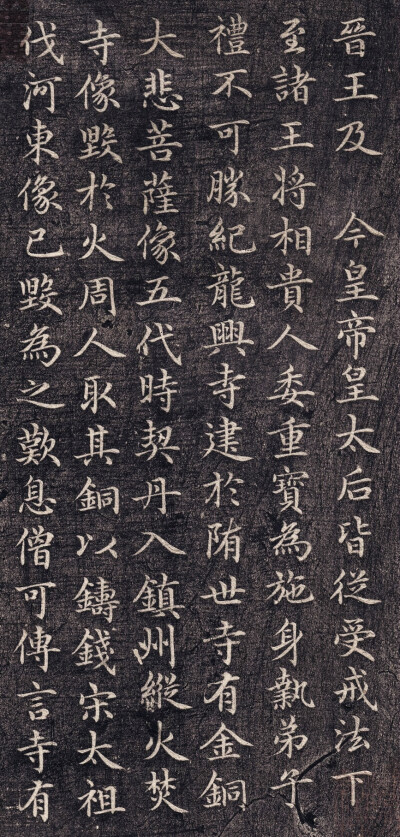 晉王及　今皇帝皇太后皆從受戒法下
至諸王將相貴人委重寶為施身執弟子
禮不可勝紀龍興寺建於隋世寺有金銅
大悲菩薩像五代時契丹入鎮州縱火焚
寺像毀於火周人取其銅以鑄錢宋太祖
伐河東像已毀為之歎息僧可傳言寺有